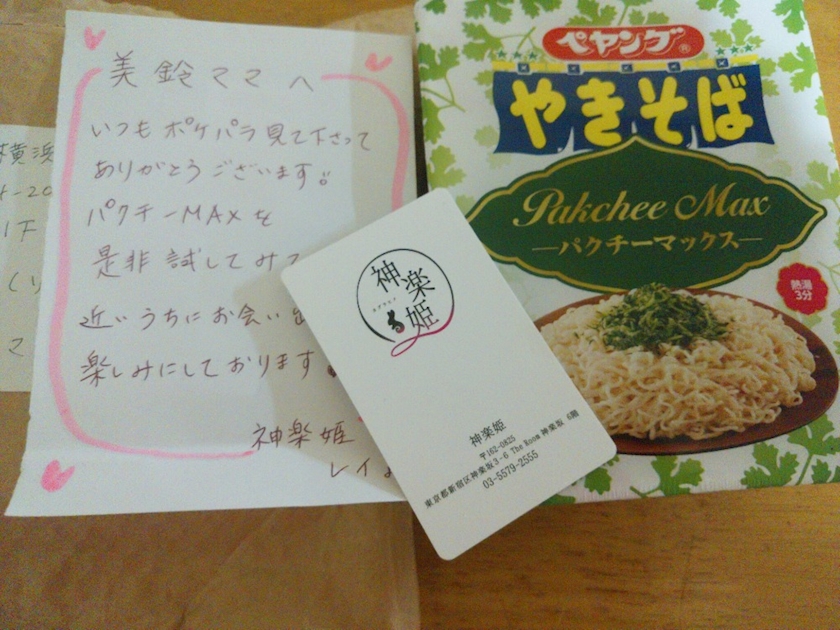 横浜
美鈴ママへ
いつもポケパラ見て下さって
ありがとうございます!!
パクチーMAXを
是非試してみて
近いうちにお会い出
楽しみにしております
神楽姫
レイ
神楽姫
神楽姫
〒162-0825
東京都新宿区神楽坂3-6 The Room 神楽坂 6階
03-5579-2555
ペヤング®
やきそば
Pakchee Max
―パクチーマックス―
熱湯
3分